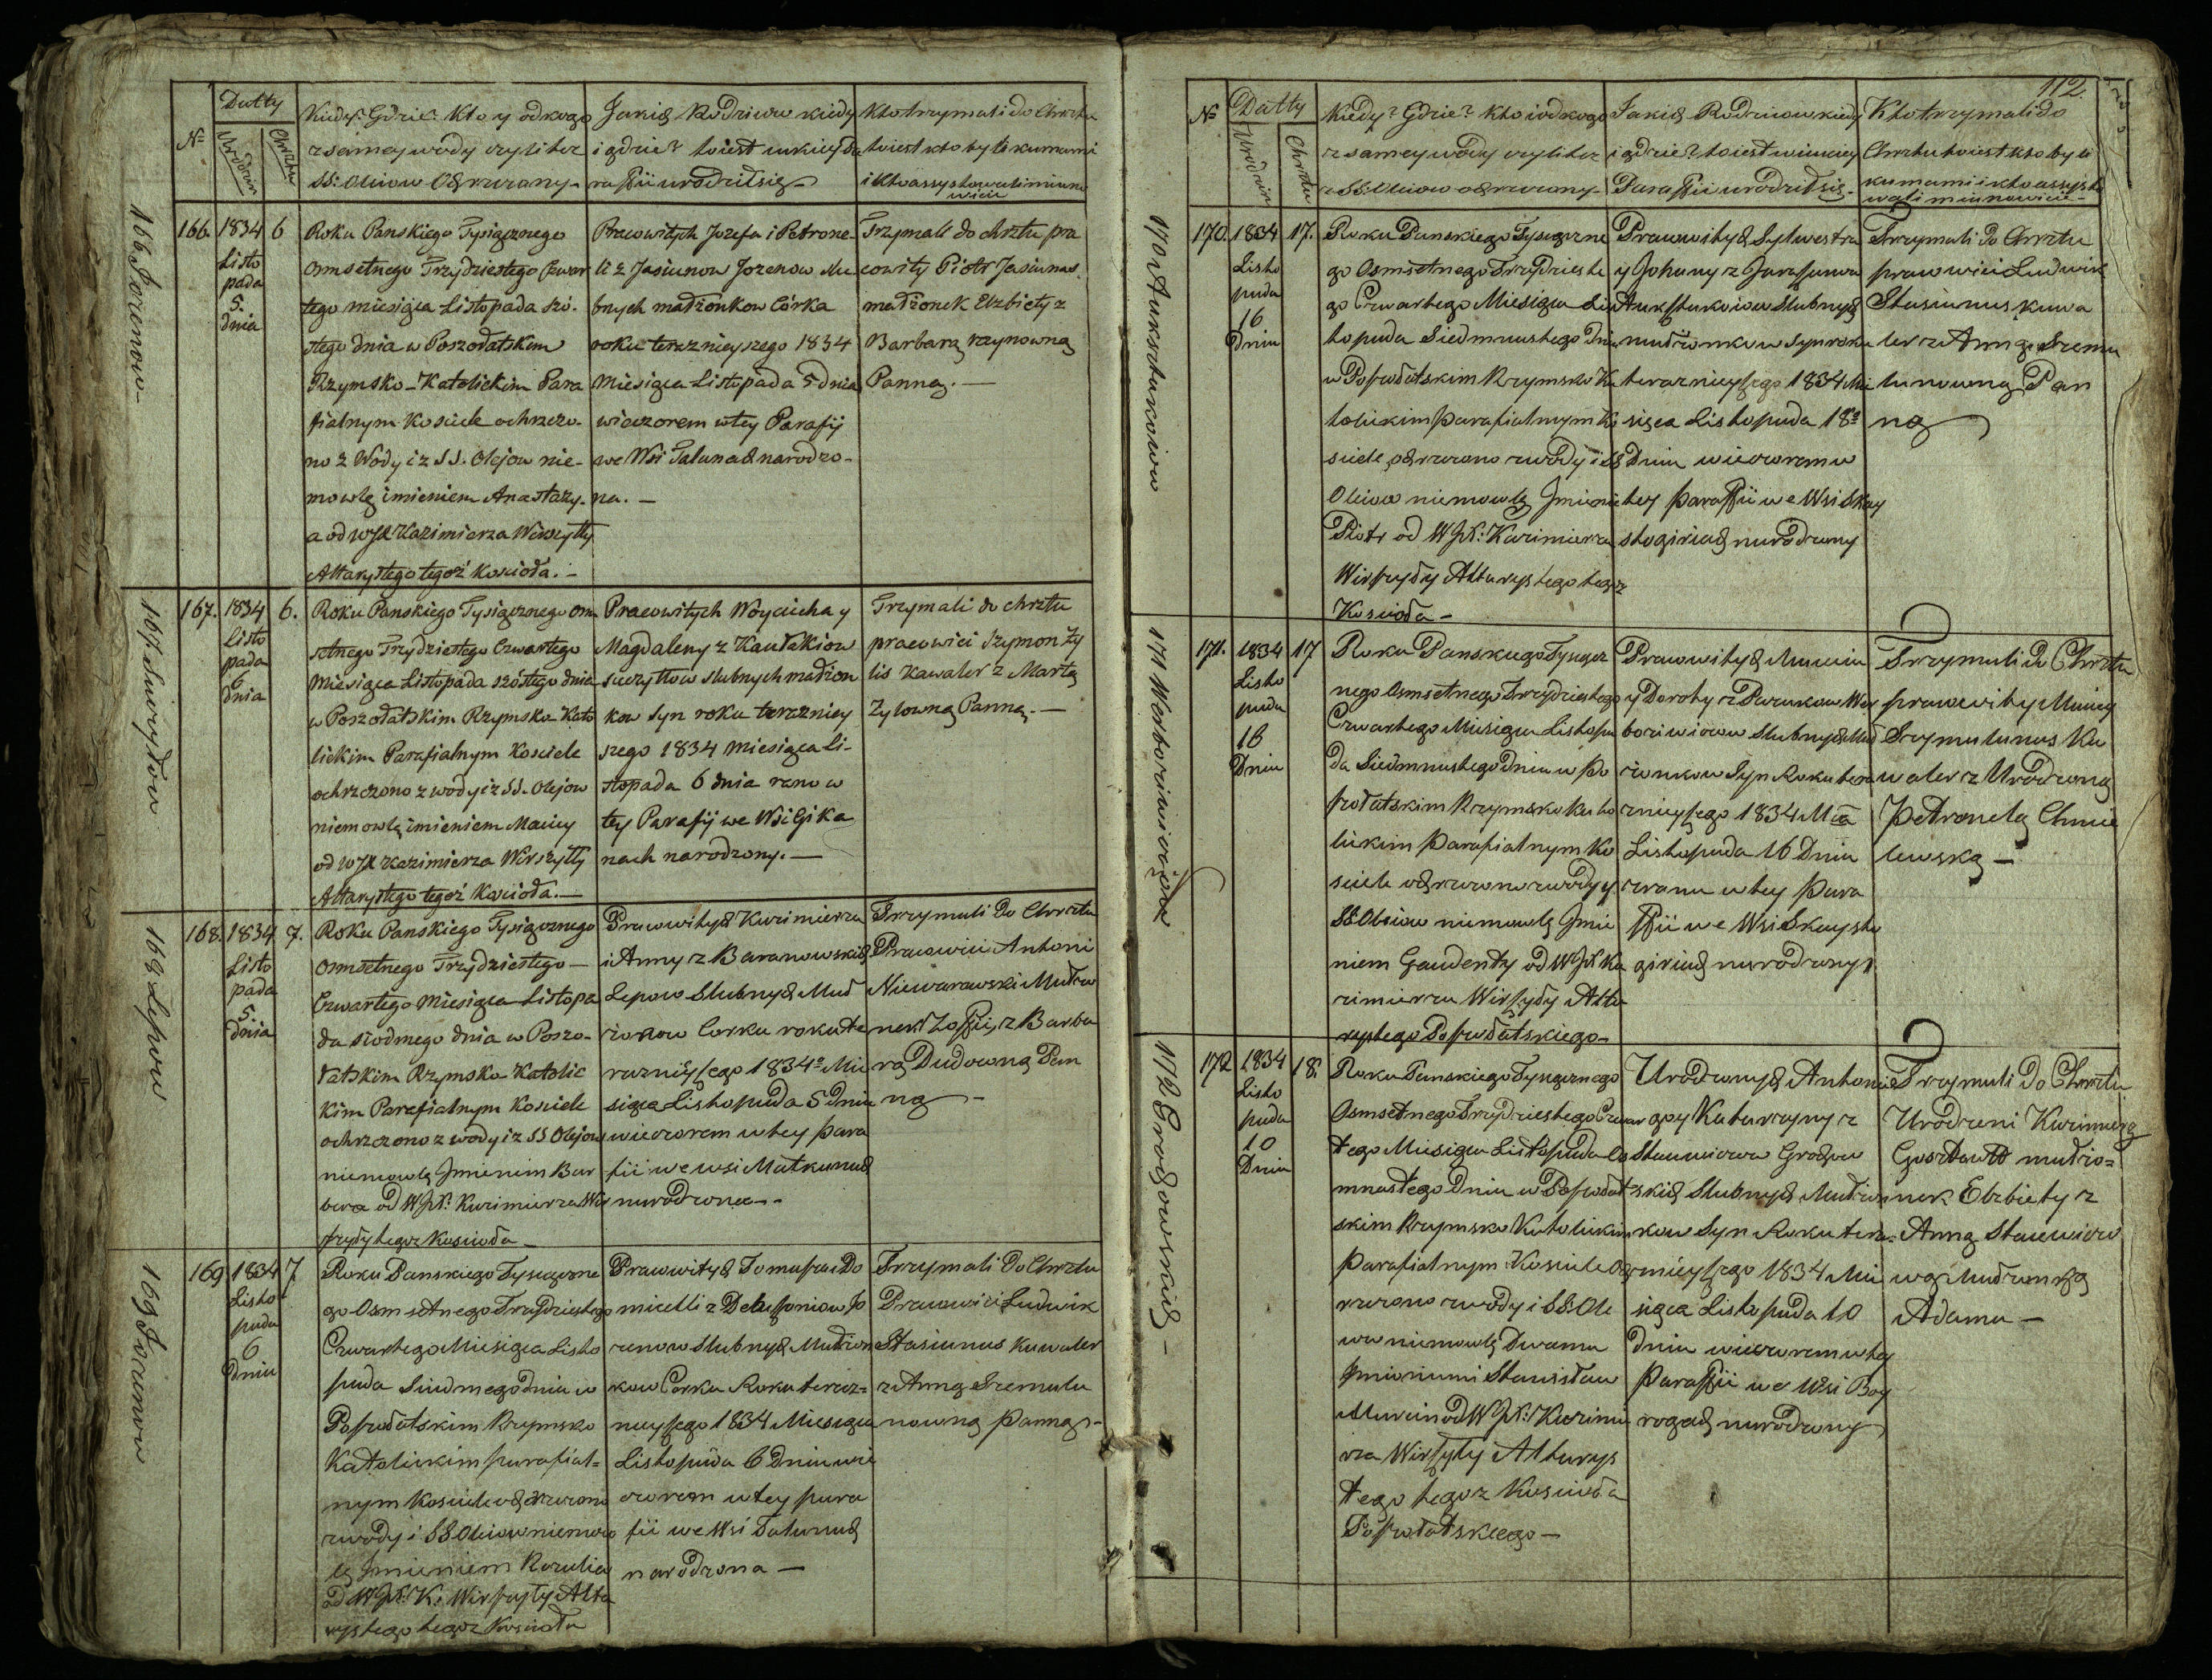 Datty
Kiedy? Gdzie? Kto y od kogo
z samey wody czyli tez
SS: Oliow Ochrzczany
Jakich Rodzicow kiedy
i gdzie? toiest w kiey Pa
raffii urodził się
Kto trzymali do Chrztu
toiest kto byli kumami
i kto assystowali miano
wicie
№
Urodzin
Chrztu
166 Jozenow
166.
1834
Listo
pada
5.
dnia
6
Roku Panskiego Tysiącznego
Osmsetnego Trzydziestego Czwar
tego miesiąca Listopada szó-
stego dnia w Poszołatskim
Rzymsko-Katolickim Para
fialnym Kosciele ochrzczo-
no z Wody i z SS. Olejow nie-
mowlę imieniem Anastazy-
a od WJX Kazimierza Wirszytty
Altarystego tegoż Koscioła.-
Pracowitych Jozefa i Petrone-
li z Jasiunow Jozenow ślu-
bnych małżonkow Córka
roku teraznieyszego 1834
Miesiąca Listopada 5 dnia
wieczorem w tey Parafij
we Wsi Talunach narodzo-
na.-
Trzymali do chrztu pra
cowity Piotr Jasiunas
małżonek Elzbiety z
Barbarą
Panną.-
167.
1834
Listo
pada
6
dnia
6.
Roku Panskiego Tysiącznego Osm
setnego Trzydziestego Czwartego
Miesiąca Listopada szóstego dnia
w Poszołatskim Rzymsko-Kato
lickim Parafialnym Kosciele
ochrzczono z wody i z SS. Olejow
niemowlę imieniem Maciey
od WJX Kazimierza Wirszytty
Altarystego tegoż Koscioła.-
Pracowitych Woyciecha y
Magdaleny z Kaulakiow
ślubnych małżon
kow Syn roku terazniey
szego 1834 miesiąca Li-
stopada 6 dnia rano w
tey Parafij we Wsi Gika
nach narodzony.-
Trzymali do chrztu
pracowici Szymon Zy
lis Kawaler z Martą
Zylowną Panną.-
168 Lepow
168.
1834
Listo
pada
5.
dnia
7.
Roku Panskiego Tysiącznego
Osmsetnego Trzydziestego-
Czwartego miesiąca Listopa
da siodmego dnia w Poszo-
łatskim Rzymsko-Katolic
kim Parafialnym Kosciele
ochrzczono z wody i z SS Olejow
niemowlę Jmieniem Bar
bara od WJX: Kazimierza Wir
szyły tegoz Kosciola-
Pracowitych Kazimierza
i Anny z Baranowskich
Lepow Slubnych Mał
zonkow Corka roku te
raznieyszego 1834º Mie
siąca Listopada 5 Dnia
wieczorem w tey para
fii we wsi Matkunach
narodzona-
Trzymali do Chrztu
Pracowici Antoni
Niewarowski Małżo
nek Zoffii, z Barba
rą Dudowną Pan
ną-
169 Jozenow
169
1834
Listo
pada
6
dnia
7
Roku Panskiego Tysiączne
go Osmsetnego Trzydziestego
Czwartego Miesiąca Listo
pada Siudmego dnia w
Poszołatskim Rzymsko
Katolickim parafial-
nym Kosciele ochrzczono
z wody i SS Oliow niemow
lę Jmieniem Rozalia
od WJX: K: Wirszyły Alta
rystego tegoz Kosciola
Pracowitych Tomasza i Do
micelli z
zenow Slubnych Małżon
kow Corka Roku teraz-
nieyszego 1834 Miesiąca
Listopada 6 Dnia wie
czorem w tey para
fii we Wsi Talunach
narodzona-
Trzymali do Chrztu
Pracowici Ludwik
Stasiunas Kawaler
z Anną Szemata
nowną panną-
112.
№
Datty
Urodzin
Chrztu
Kiedy? Gdzie? Kto i od kogo
z samey wody czyli tez
z SS: Oliow ochrzczony-
Jakich Rodzicow kiedy
i gdzie? toiest w iakiey
Paraffii urodził się-
Kto trzymali do
Chrztu toiest kto byli
kumami i kto assysto
wali mianowicie-
170 Auksztukoiow
170.
1834
Listo
pada
16
Dnia
17.
Roku Panskiego Tysiączne
go Osmsetnego Trzydzieste
go Czwartego Miesiąca Lis
topada Siedmnastego Dnia
w Poszołatskim Rzymsko Ka
tolickim parafialnym Ko
sciele ochrzczono z wody i SS
Oliow niemowlę Jmienie
Piotr od WJX: Kazimierza
Wirszyły Altarystego tegoz
Kosciola-
Pracowitych Sylwestra
y Johany z
Auksztukoiow Slubnych
małżonkow Syn roku
teraznieyszego 1834 Mie
siąca Listopada 18º
Dnia wieczorem w
tey paraffii we Wsi Skay
stogiriach narodzony
Trzymali do Chrztu
pracowici Ludwik
Stasiunas kawa
ler z Anną Szema
tunowną Pan
ną
171.
1834
Listo
pada
16
Dnia
17
Roku Panskiego Tysiącz
nego Osmsetnego Trzydziestego
Czwartego Miesiąca Listopa
da Siedmnastego dnia w Po
szołatskim Rzymsko Kato
lickim Parafialnym Ko
sciele ochrzczono z wody y
SS Oliow niemowlę Jmie
niem Gaudenty od WJX Ka
zimierza Wirszyły Alta
rystego Poszołatskiego-
Pracowitych Marcina
y Doroty z
Slubnych Mał
zonkow Syn Roku tera
znieyszego 1834 Mca
Listopada 16 Dnia
z rana w tey Para
ffii we Wsi Skaysto
giriach narodzony
Trzymali do Chrztu
pracowity Maciey
Szymulunas Ka
waler z Urodzoną
Petronelą Chmie
lewską-
172 Grodzowskich-
172
1834
Listo
pada
10
Dnia
18.
Roku Panskiego Tysiącznego
Osmsetnego Trzydziestego Czwar
tego Miesiąca Listopada Os
mnastego Dnia w Poszołat
skim Rzymsko Katolickim
Parafialnym Kosciele och
rzczono z wody i SS: Ole
iow niemowlę Dwoma
Jmionami Stanisław
Marcin od WJX: Kazimie
rza Wirszyły Altarys
tego tegoz Kosciola
Poszołatskiego-
Urodzonych Antonie
go y Katarzyny z
Grodzow
skich Slubnych Małżon
kow Syn Roku tera-
znieyszego 1834 Mie
siąca Listopada 10
dnia wieczorem w tey
Paraffii we Wsi Boy
rogach narodzony
Trzymali do Chrztu
Urodzeni Kazimierz
Gosztowtt małżo-
nek Elzbiety z
Anną Staniewiczo
wą Małżonką
Adama-